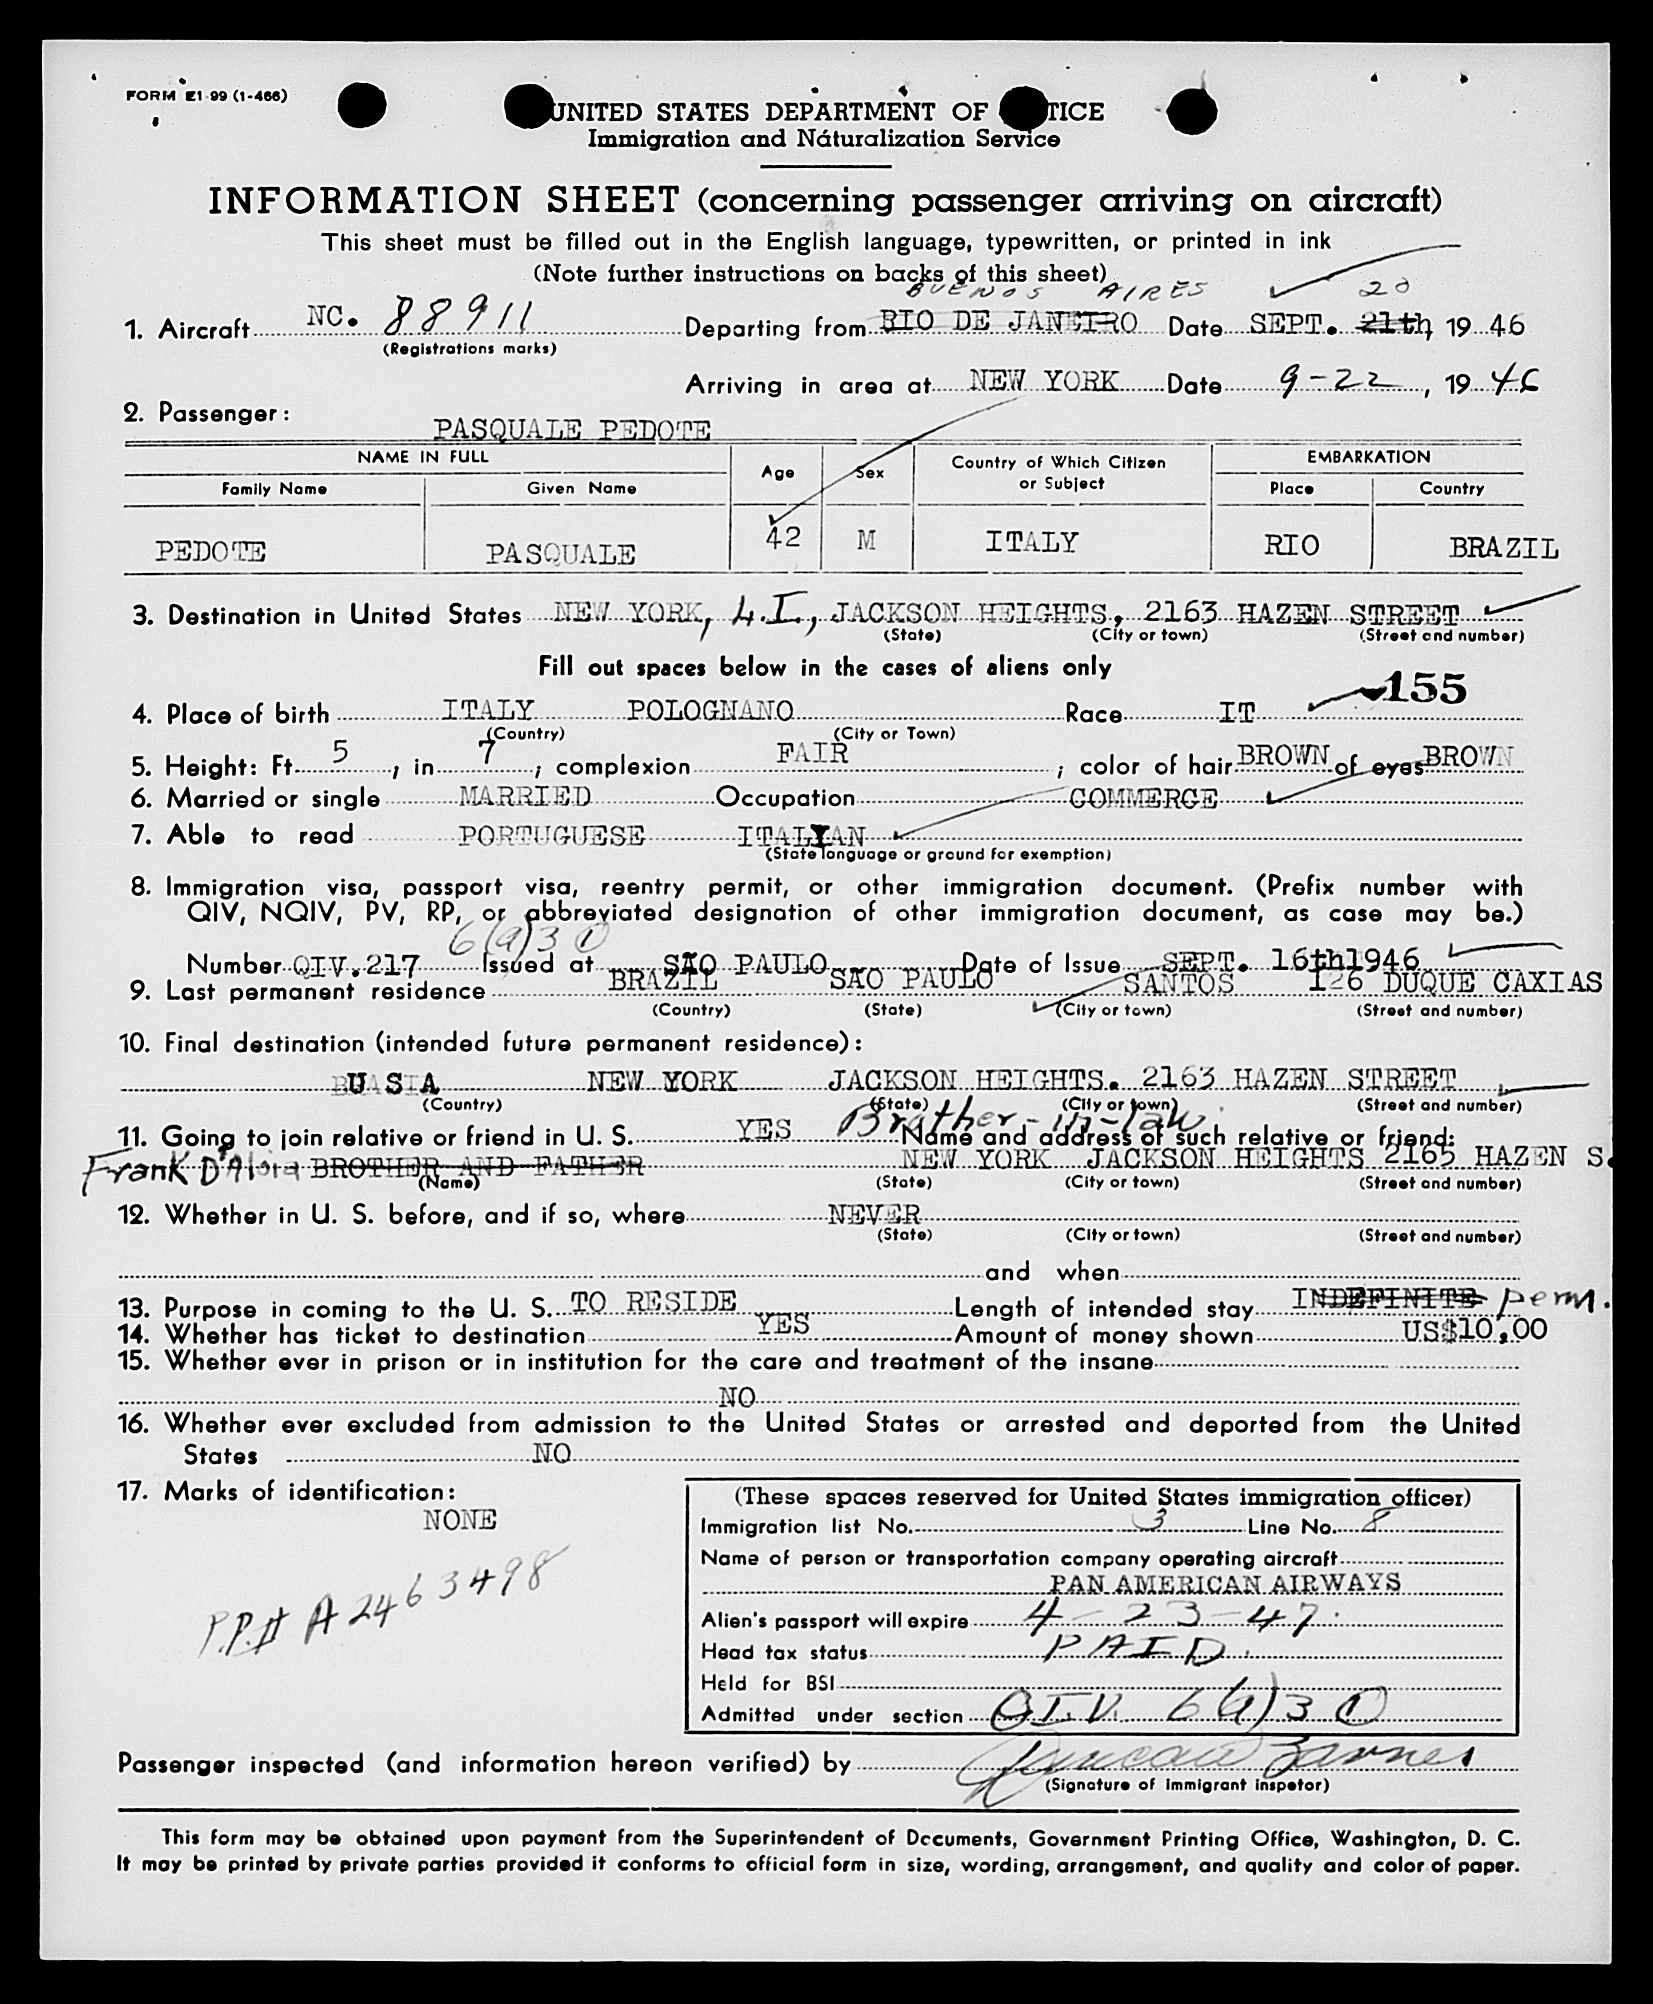 FORM E1-99 (1-466)
UNITED STATES DEPARTMENT OF TICE
Immigration and Naturalization Service
INFORMATION SHEET (concerning passenger arriving on aircraft)
This sheet must be filled out in the English language, typewritten, or printed in ink
(Note further instructions on backs of this sheet)
BUENOS AIRES 20
1. Aircraft NC. 88911 Departing from RIO DE JANEIRO Date SEPT. 21th, 1946
(Registrations marks)
Arriving in area at NEW YORK Date 9-22, 1946
2. Passenger:
PASQUALE PEDOTE
NAME IN FULL Age Sex Country of Which Citizen or Subject EMBARKATION
Family Name Given Name Place Country
PEDOTE PASQUALE 42 M ITALY RIO BRAZIL
3. Destination in United States NEW YORK, L.I., JACKSON HEIGHTS, 2163 HAZEN STREET
(State) (City or town) (Street and number)
Fill out spaces below in the cases of aliens only
155
4. Place of birth ITALY POLOGNANO Race IT
(Country) (City or Town)
5. Height: Ft. 5, in. 7; complexion FAIR; color of hair BROWN of eyes BROWN
6. Married or single MARRIED Occupation COMMERCE
7. Able to read PORTUGUESE ITALIAN
(State language or ground for exemption)
8. Immigration visa, passport visa, reentry permit, or other immigration document. (Prefix number with
QIV, NQIV, PV, RP, or abbreviated designation of other immigration document, as case may be.)
6(a)3 ①
Number QIV.217 Issued at SÃO PAULO Date of Issue SEPT. 16th1946
9. Last permanent residence BRAZIL SAO PAULO SANTOS 126 DUQUE CAXIAS
(Country) (State) (City or town) (Street and number)
10. Final destination (intended future permanent residence):
NEW YORK JACKSON HEIGHTS. 2163 HAZEN STREET
(Country) (State) (City or town) (Street and number)
Brother-in-law
11. Going to join relative or friend in U. S. YES Name and address of such relative or friend:
Frank D'Aloia BROTHER AND FATHER NEW YORK JACKSON HEIGHTS 2165 HAZEN S.
(Name) (State) (City or town) (Street and number)
12. Whether in U. S. before, and if so, where NEVER
(State) (City or town) (Street and number)
and when
13. Purpose in coming to the U. S. TO RESIDE Length of intended stay INDEFINITE perm.
14. Whether has ticket to destination YES Amount of money shown US$10,00
15. Whether ever in prison or in institution for the care and treatment of the insane
NO
16. Whether ever excluded from admission to the United States or arrested and deported from the United
States NO
17. Marks of identification:
NONE
P.P.# A2463498
(These spaces reserved for United States immigration officer)
Immigration list No. 3 Line No. 8
Name of person or transportation company operating aircraft
PAN AMERICAN AIRWAYS
Alien's passport will expire 4-23-47.
Head tax status PAID.
Held for BSI
Admitted under section Q.I.V. 6(a)3 ①
Passenger inspected (and information hereon verified) by
(Signature of Immigrant inspetor)
This form may be obtained upon payment from the Superintendent of Documents, Government Printing Office, Washington, D. C.
It may be printed by private parties provided it conforms to official form in size, wording, arrangement, and quality and color of paper.